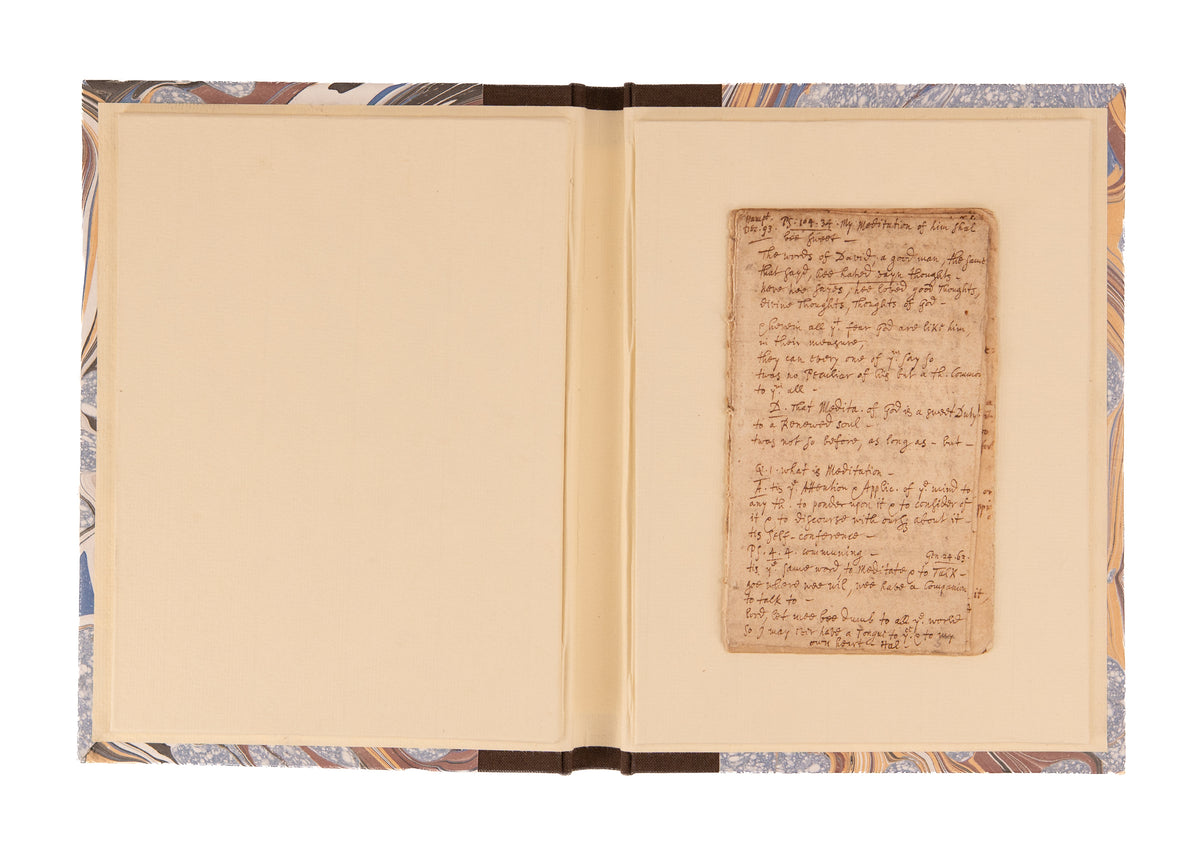 Hampt. Ps. 104. 34. My Meditation of him shal
Dec. 93. bee sweet —
The words of David, a good man, the same
that sayd, hee hated vayn thoughts —
here hee sayes, hee loved good Thoughts,
divine Thoughts, Thoughts of god —
wherein all yt. fear God are like him,
in their measure,
they can every one of ym. say so
twas no Peculiar of his but a th. Common
to ym. all —
D. That Medita. of God is a sweet Duty
to a Renewed soul —
twas not so before, as long as — but —
Q. 1. what is Meditation —
A. tis ye. Attention & Applic. of ye. mind to
any th. to ponder upon it & to consider of
it & to discourse with ours. about it —
tis self-conference —
Ps. 4. 4. communing — Gen. 24. 63.
tis ye. same word to Meditate & to Talk —
goe where wee wil, wee have a Companion
to talk to —
lord, let mee bee dumb to all ye. world
so I may ever have a Tongue to ye. & to my
own heart Hal —